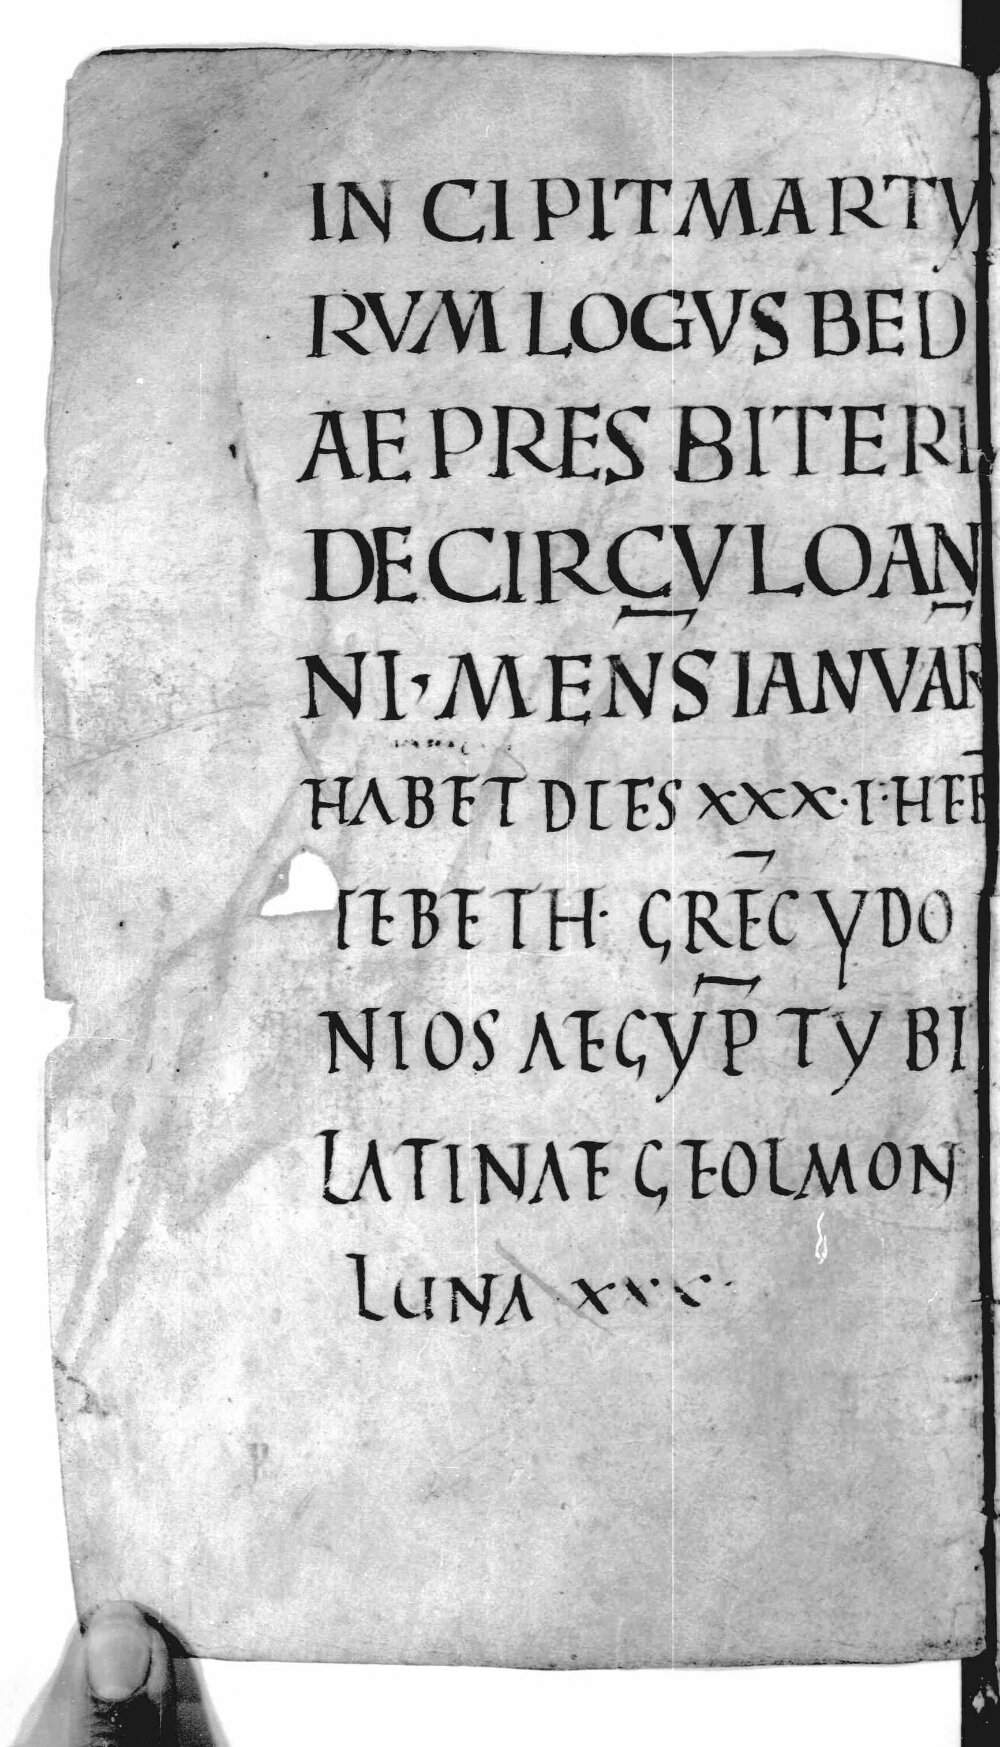 INCIPIT MARTY
RVMLOGVS BED
AE PRESBITERI
DE CIRCVLO AN
NI · MENS IANVAR
HABET DIES XXX·I· HEB
TEBETH· GREC YDO
NIOS AEGYP TYBI
LATINAE GEOLMON
LUNA XXX·